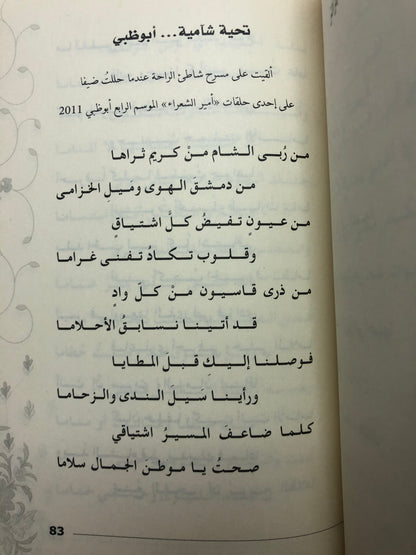 تحية شآمية... أبوظبي
ألقيت على مسرح شاطئ الراحة عندما حللتُ ضيفا
على إحدى حلقات «أمير الشعراء» الموسم الرابع أبوظبي 2011
من رُبى الشام منْ كريم ثراها
من دمشقَ الهوى ومَيلِ الخزامى
من عيونٍ تفيضُ كلَّ اشتياقٍ
وقلوب تكادُ تفنى غراما
من ذرى قاسيون منْ كلّ وادٍ
قد أتينا نسابقُ الأحلاما
فوصلنا إليكِ قبلَ المطايا
ورأينا سَيلَ الندى والزحاما
كلما ضاعفَ المسيرُ اشتياقي
صحتُ يا موطنَ الجمال سلاما
83